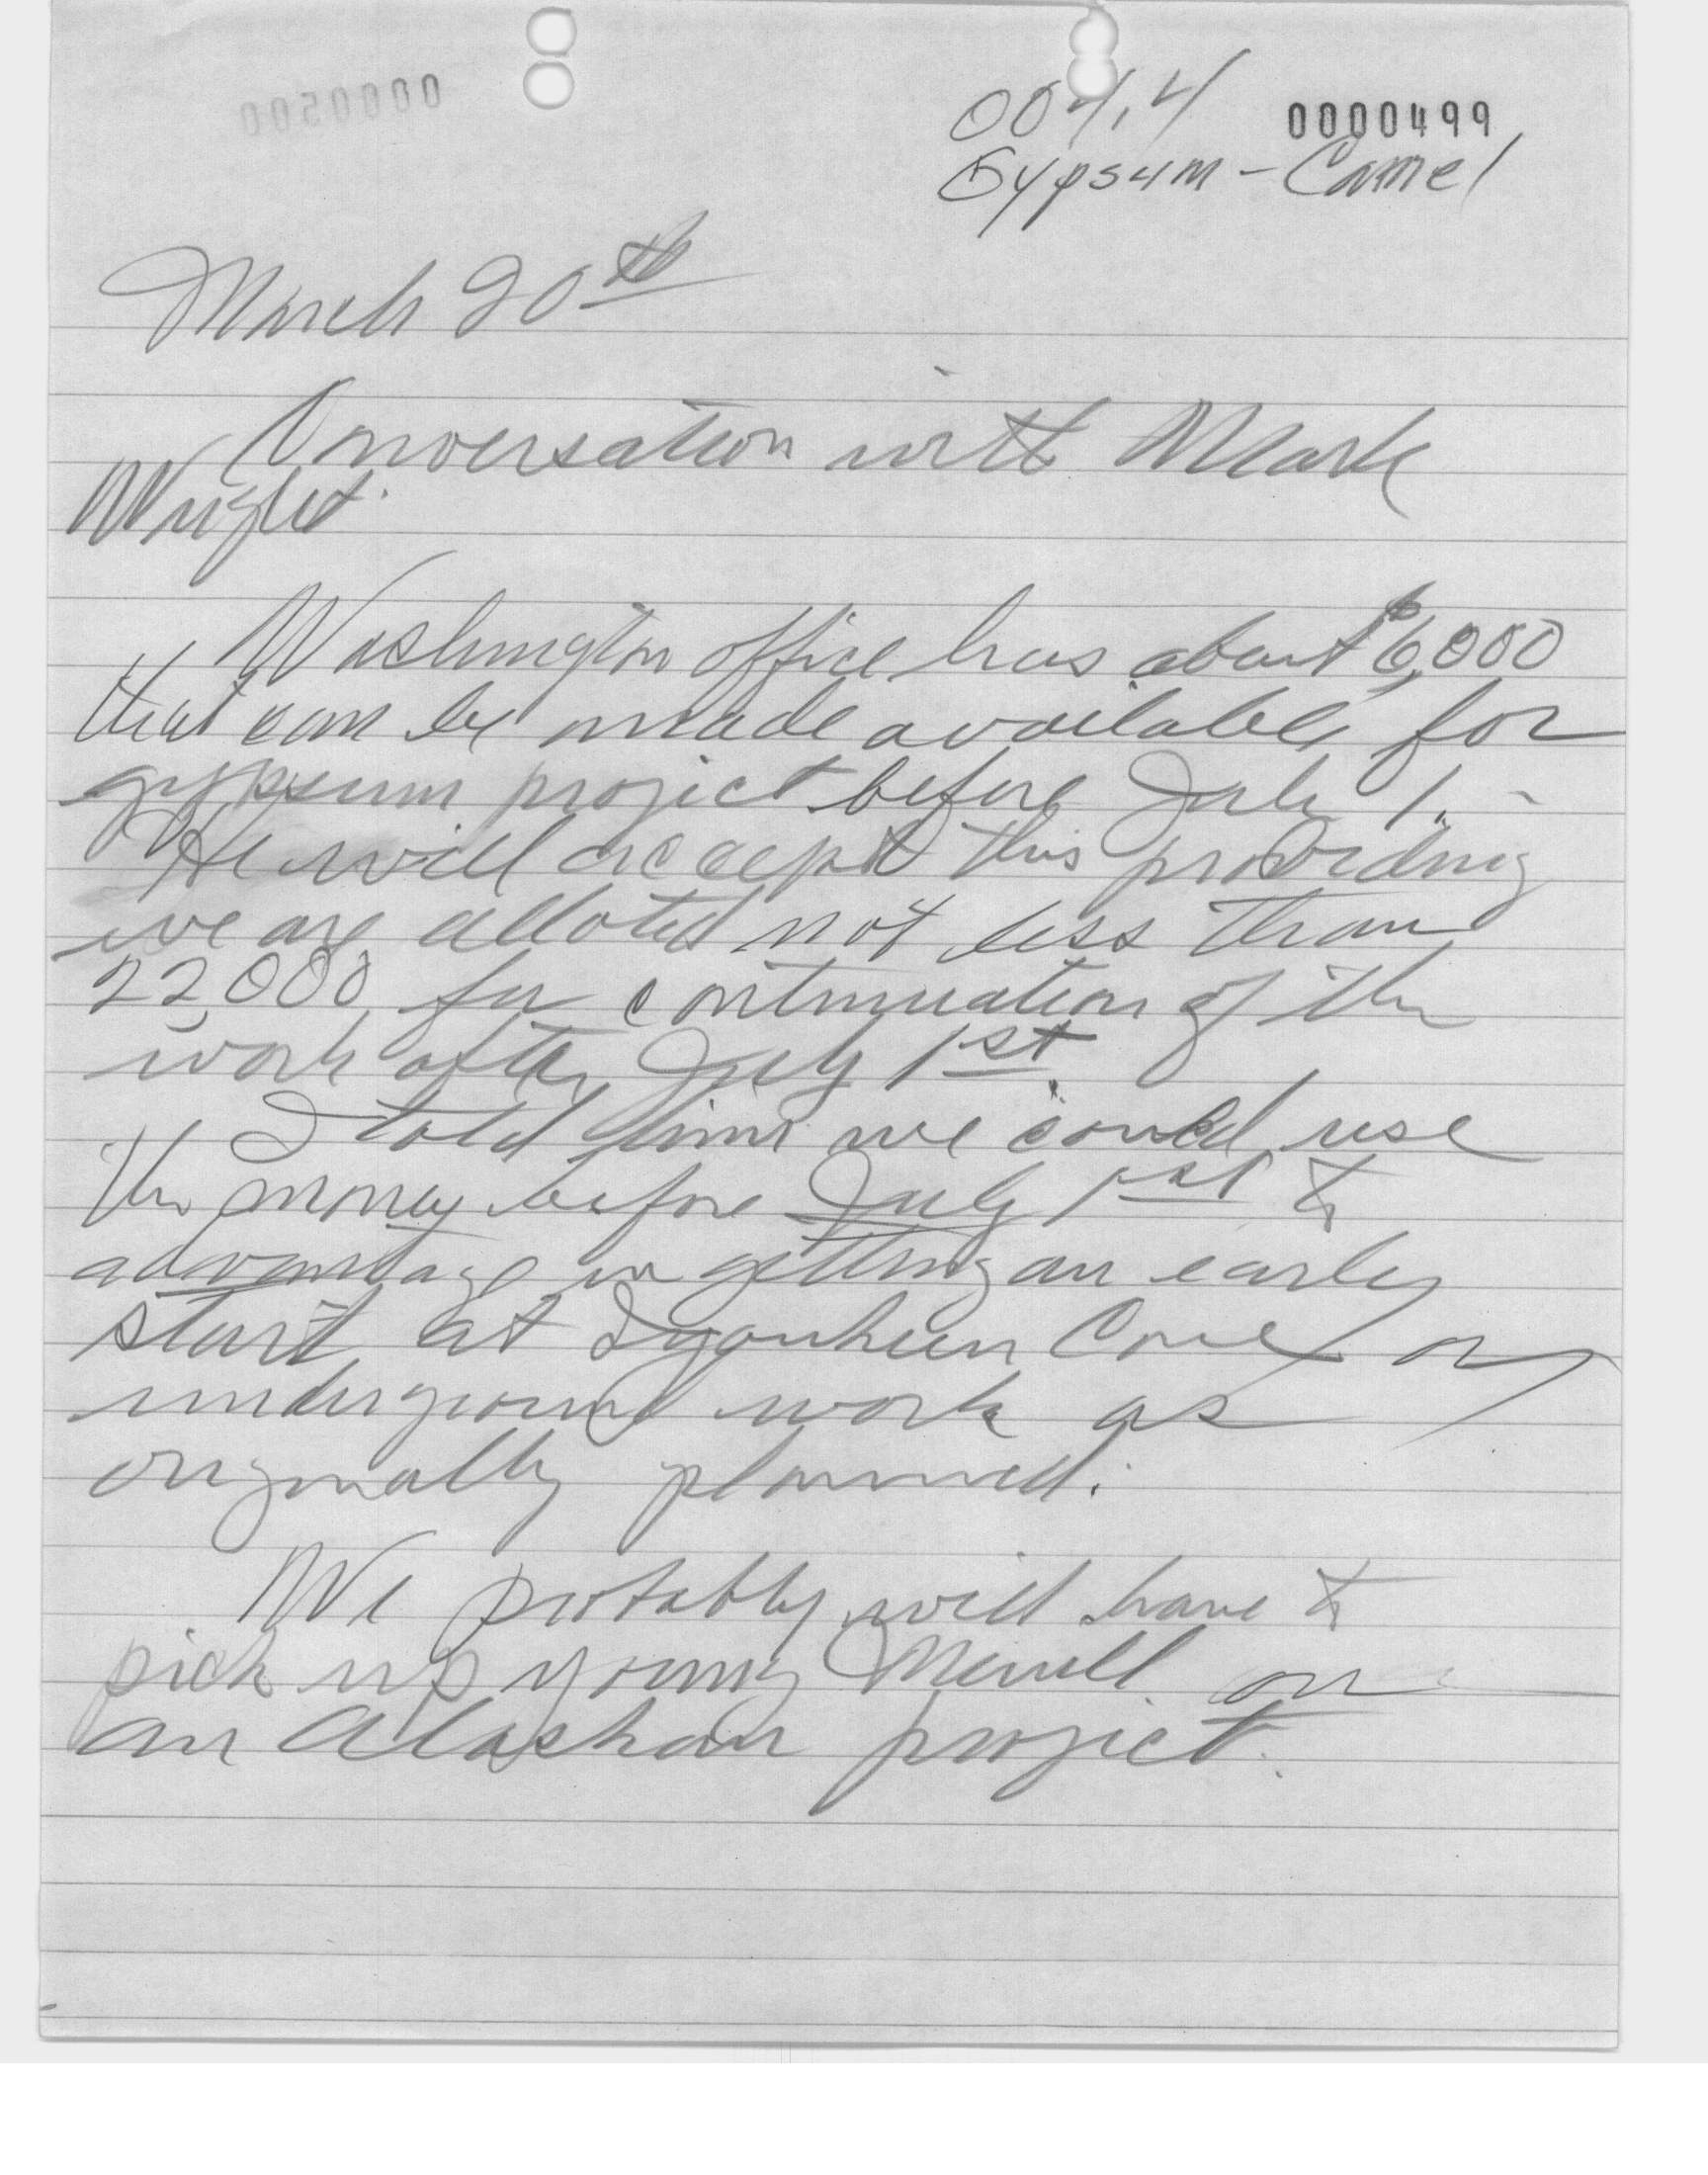 0000500
004.4 0000499
Gypsum - Camel
March 20th
Conversation with Mark
Wright.
Washington office has about $6,000
that can be made available for
gypsum project before July 1. -
He will accept this providing
we are alloted not less than
22,000 for continuation of the
work after July 1st.
I told him we could use
the money before July 1st to
advantage in getting an early
start at Iyouheen Cove on
underground work as
originally planned.
We probably will have to
pick up young on
an Alaskan project.